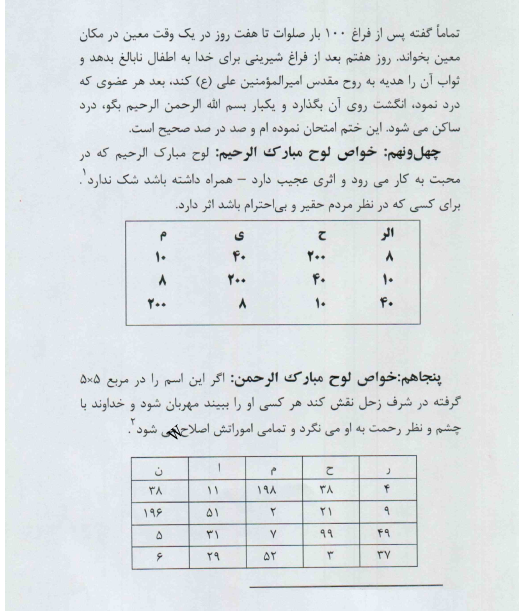 تماماً گفته پس از فراغ ۱۰۰ بار صلوات تا هفت روز در یک وقت معین در مکان
معین بخواند. روز هفتم بعد از فراغ شیرینی برای خدا به اطفال نابالغ بدهد و
ثواب آن را هدیه به روح مقدس امیرالمؤمنین علی (ع) کند، بعد هر عضوی که
درد نمود، انگشت روی آن بگذارد و یکبار بسم الله الرحمن الرحیم بگو، درد
ساکن می شود. این ختم امتحان نموده ام و صد در صد صحیح است.
چهل‌ونهم: خواص لوح مبارك الرحیم: لوح مبارک الرحیم که در
محبت به کار می رود و اثری عجیب دارد – همراه داشته باشد شک ندارد۱.
برای کسی که در نظر مردم حقیر و بی‌احترام باشد اثر دارد.
الر ح ی م
۸ ۲۰۰ ۴۰ ۱۰
۱۰ ۴۰ ۲۰۰ ۸
۴۰ ۱۰ ۸ ۲۰۰
پنجاهم:خواص لوح مبارك الرحمن: اگر این اسم را در مربع ۵×۵
گرفته در شرف زحل نقش کند هر کسی او را ببیند مهربان شود و خداوند با
چشم و نظر رحمت به او می نگرد و تمامی اموراتش اصلاح می شود۲.
ر ح م ا ن
۴ ۳۸ ۱۹۸ ۱۱ ۳۸
۹ ۲۱ ۲ ۵۱ ۱۹۶
۴۹ ۹۹ ۷ ۳۱ ۵
۳۷ ۳ ۵۲ ۲۹ ۶